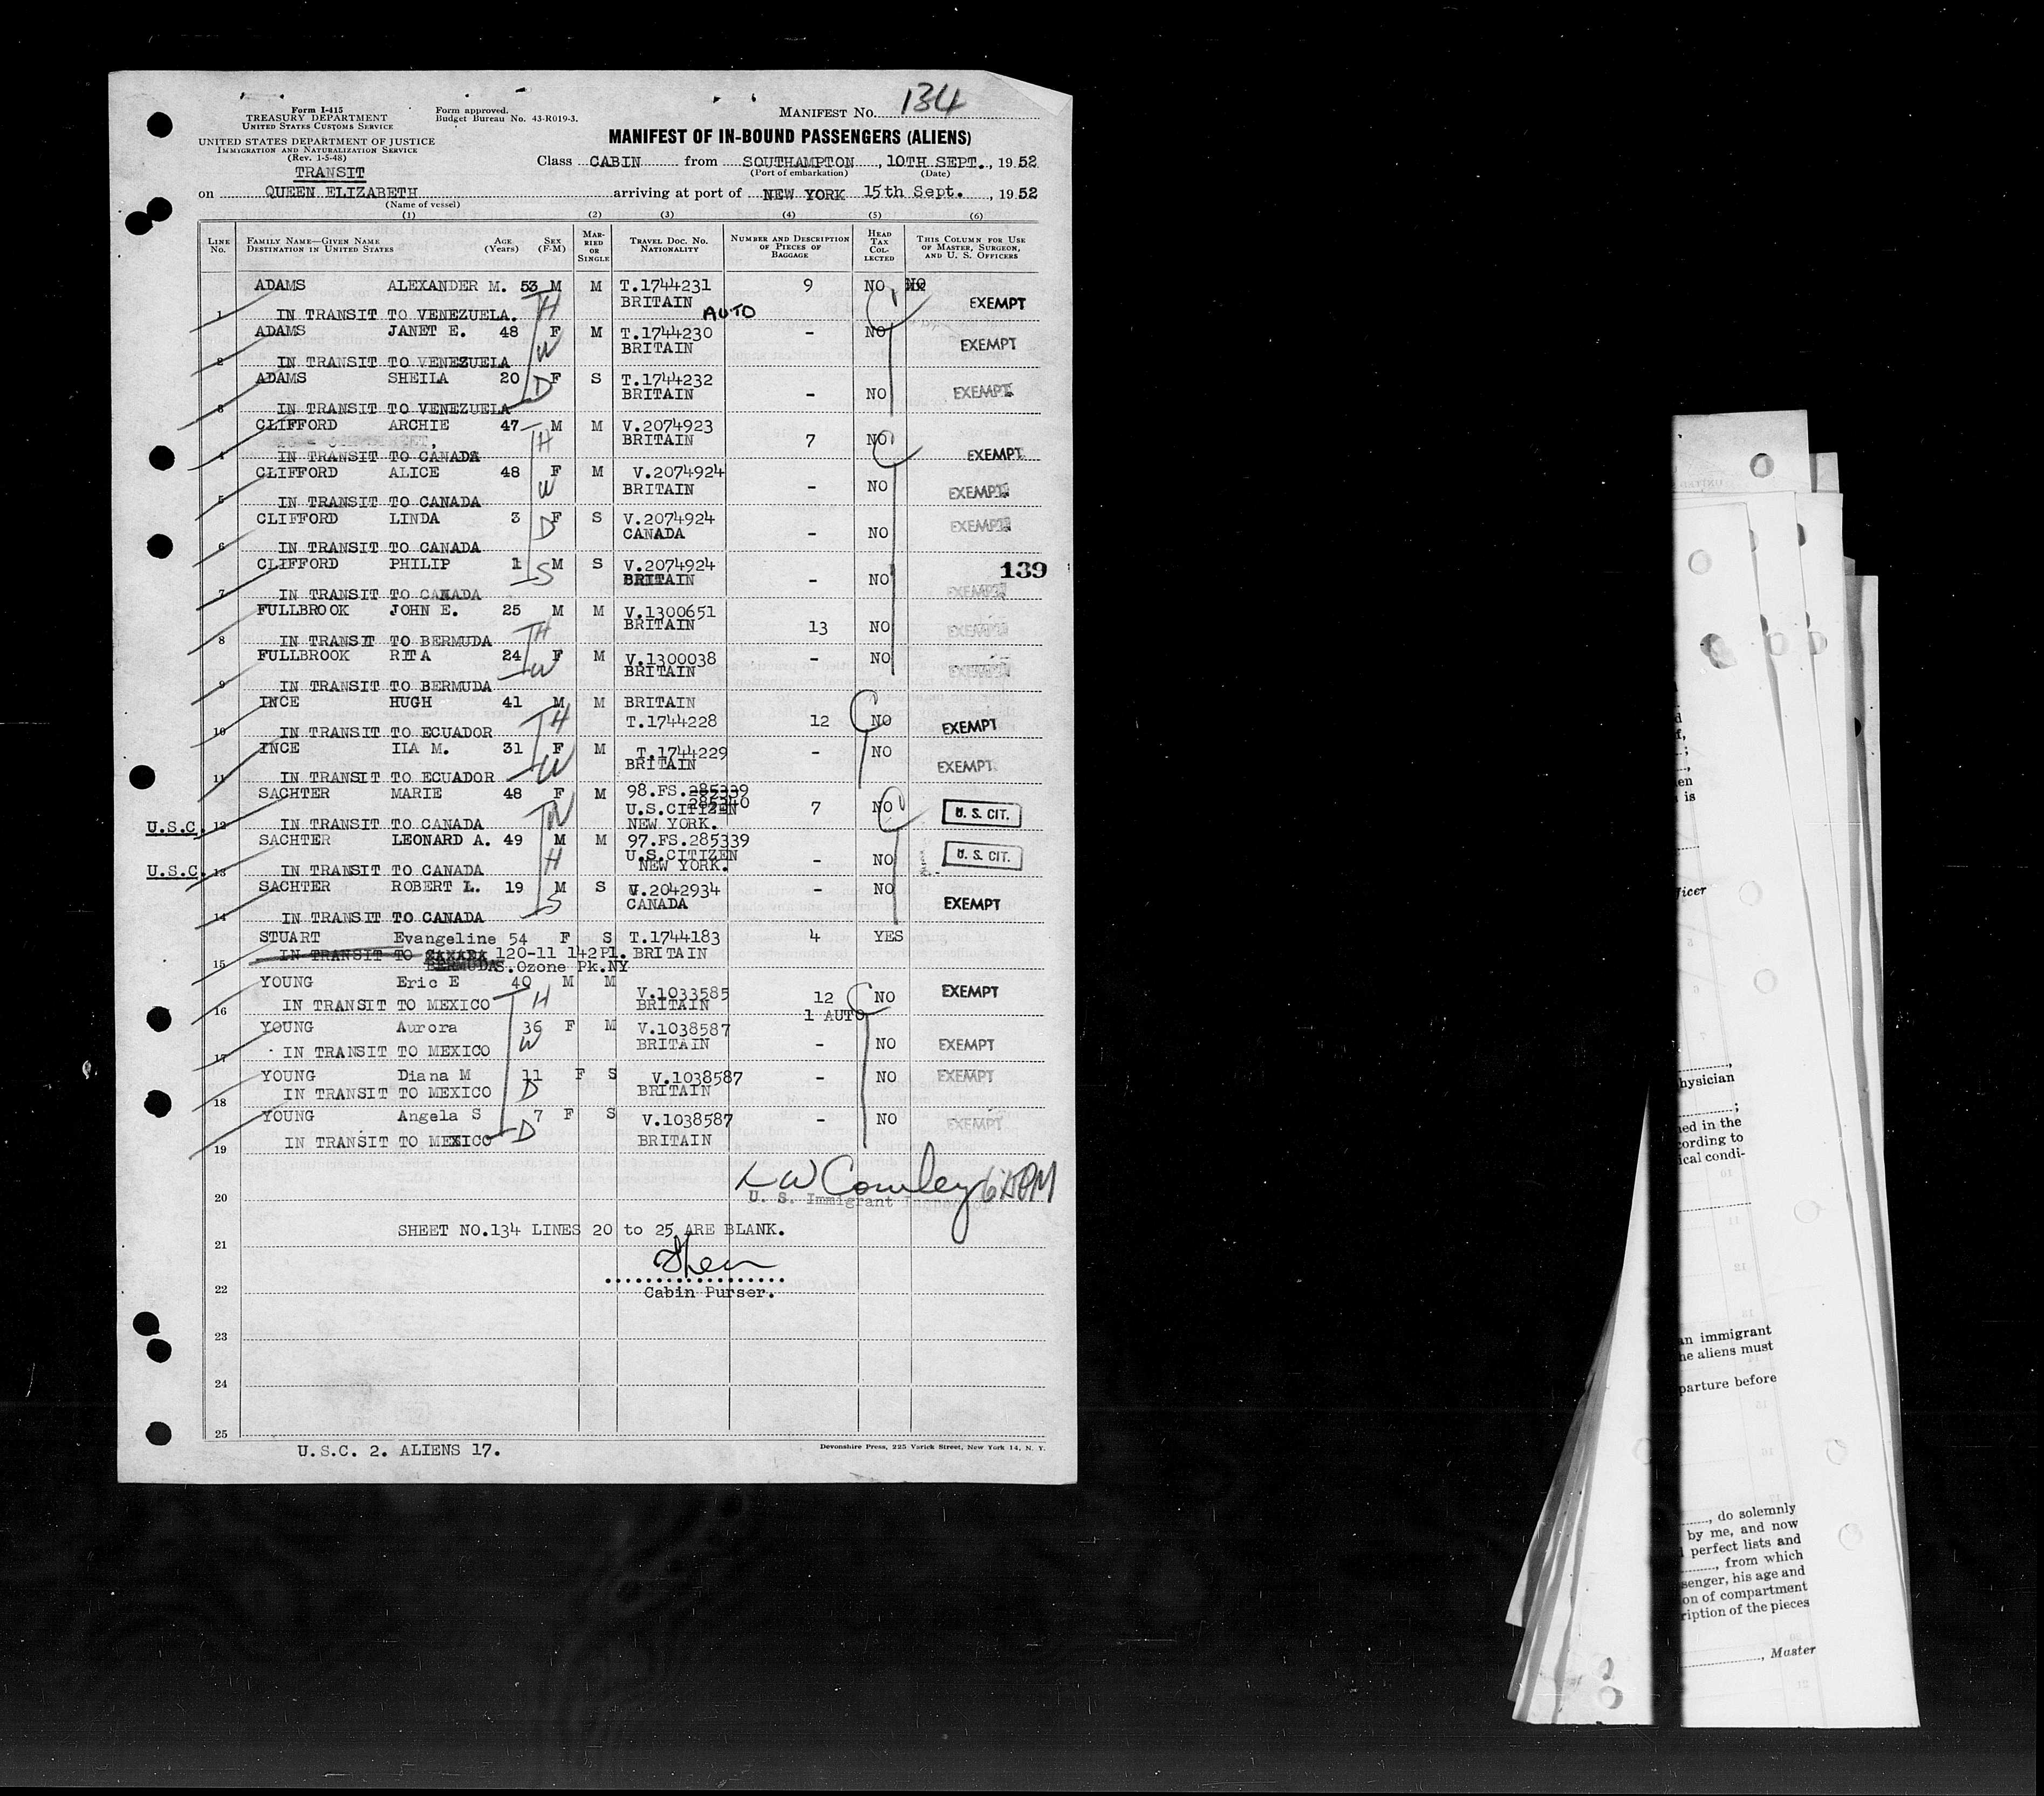 Form I-415
TREASURY DEPARTMENT
UNITED STATES CUSTOMS SERVICE
Form approved.
Budget Bureau No. 43-R019-3.
MANIFEST NO. 134
UNITED STATES DEPARTMENT OF JUSTICE
IMMIGRATION AND NATURALIZATION SERVICE
(Rev. 1-5-48)
MANIFEST OF IN-BOUND PASSENGERS (ALIENS)
TRANSIT
Class CABIN from SOUTHAMPTON, 10TH SEPT., 1952
(Port of embarkation) (Date)
on QUEEN ELIZABETH arriving at port of NEW YORK 15th Sept., 1952
(Name of vessel)
(1) (2) (3) (4) (5) (6)
LINE NO. FAMILY NAME—GIVEN NAME DESTINATION IN UNITED STATES AGE (YEARS) SEX (F-M) MARRIED OR SINGLE TRAVEL DOC. NO. NATIONALITY NUMBER AND DESCRIPTION OF PIECES OF BAGGAGE HEAD TAX COLLECTED THIS COLUMN FOR USE OF MASTER, SURGEON, AND U. S. OFFICERS
ADAMS ALEXANDER M. 53 M M T.1744231 9 NO
BRITAIN EXEMPT
1 IN TRANSIT TO VENEZUELA. H AUTO
ADAMS JANET E. 48 F M T.1744230 - NO
BRITAIN EXEMPT
2 IN TRANSIT TO VENEZUELA W
ADAMS SHEILA 20 F S T.1744232
BRITAIN - NO EXEMPT
3 IN TRANSIT TO VENEZUELA D
CLIFFORD ARCHIE 47 M M V.2074923
BRITAIN 7 NO
4 IN TRANSIT TO CANADA H EXEMPT
CLIFFORD ALICE 48 F M V.2074924
BRITAIN - NO EXEMPT
5 IN TRANSIT TO CANADA W
CLIFFORD LINDA 3 F S V.2074924
CANADA - NO EXEMPT
6 IN TRANSIT TO CANADA D
CLIFFORD PHILIP 1 M S V.2074924 139
BRITAIN - NO EXEMPT
7 IN TRANSIT TO CANADA S
FULLBROOK JOHN E. 25 M M V.1300651
BRITAIN 13 NO EXEMPT
8 IN TRANSIT TO BERMUDA H
FULLBROOK RITA 24 F M V.1300038 - NO
BRITAIN EXEMPT
9 IN TRANSIT TO BERMUDA W
INCE HUGH 41 M M BRITAIN
T.1744228 12 NO EXEMPT
10 IN TRANSIT TO ECUADOR H
INCE IIA M. 31 F M T.1744229 - NO
BRITAIN EXEMPT
11 IN TRANSIT TO ECUADOR W
SACHTER MARIE 48 F M 98.FS.285339
285340
U.S.CITIZEN 7 NO U. S. CIT.
U.S.C. 12 IN TRANSIT TO CANADA W NEW YORK.
SACHTER LEONARD A. 49 M M 97.FS.285339
U.S.CITIZEN - NO U. S. CIT.
NEW YORK.
U.S.C. 13 IN TRANSIT TO CANADA H
SACHTER ROBERT L. 19 M S V.2042934 - NO
CANADA EXEMPT
14 IN TRANSIT TO CANADA S
STUART Evangeline 54 F S T.1744183 4 YES
IN TRANSIT TO CANADA 120-11 142Pl. BRITAIN
15 BERMUDA S.Ozone Pk.NY
YOUNG Eric E 40 M M V.1033585 EXEMPT
IN TRANSIT TO MEXICO H BRITAIN 12 NO
16 1 AUTO
YOUNG Aurora 36 F M V.1038587
17 IN TRANSIT TO MEXICO W BRITAIN - NO EXEMPT
YOUNG Diana M 11 F S V.1038587 - NO EXEMPT
18 IN TRANSIT TO MEXICO D BRITAIN
YOUNG Angela S 7 F S V.1038587 - NO EXEMPT
19 IN TRANSIT TO MEXICO D BRITAIN
L W Conley
20 U. S. Immigrant Inspector
SHEET NO.134 LINES 20 to 25 ARE BLANK.
21
22 Cabin Purser.
23
24
25
U.S.C. 2. ALIENS 17.
Devonshire Press, 225 Varick Street, New York 14, N. Y.
hysician
ned in the
cording to
ical condi-
an immigrant
he aliens must
parture before
, do solemnly
by me, and now
perfect lists and
, from which
senger, his age and
on of compartment
ription of the pieces
, Master